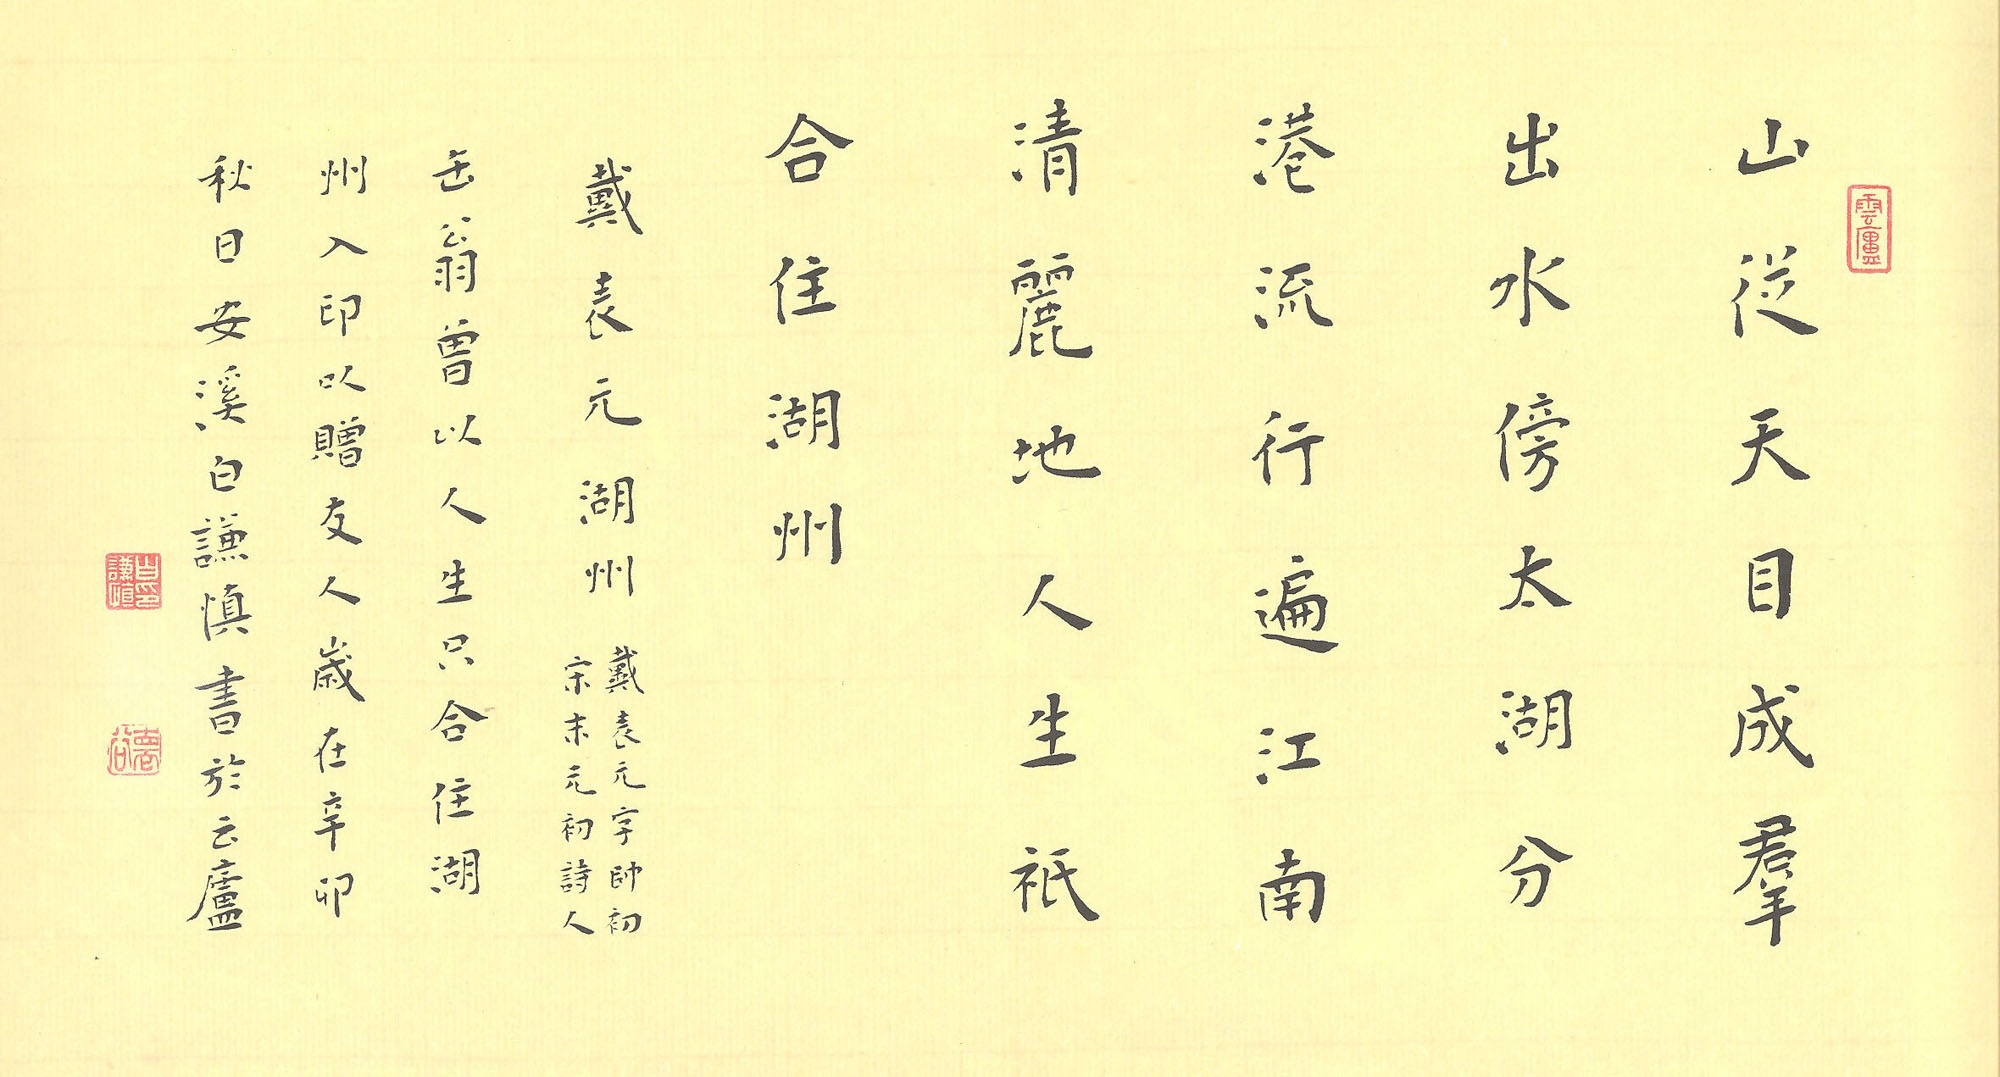 雲廬
山從天目成羣
出水傍太湖分
港流行遍江南
清麗地人生衹
合住湖州
戴表元湖州
戴表元字帥初
宋末元初詩人
缶翁曾以人生只合住湖
州入印以贈友人歲在辛卯
秋日安溪白謙慎書於云廬
白謙慎印